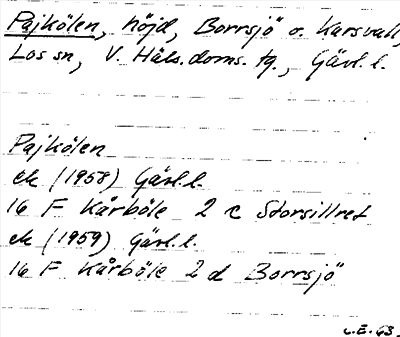 Pajkölen, höjd, Borrsjö o. Karsvall,
Los sn, V. Häls. doms. tg., Gävl. l.
Pajkölen
ek (1958) Gävl. l.
16 F Kårböle 2 c Storsillret
ek (1959) Gävl. l.
16 F Kårböle 2 d Borrsjö
L.E. 63.